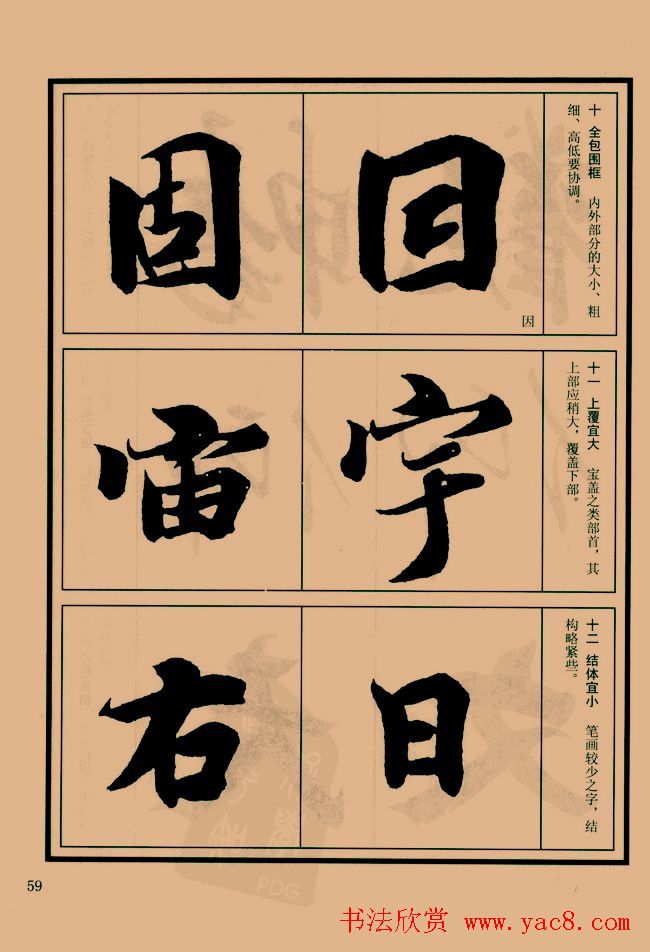 十 全包围框 内外部分的大小、粗
细、高低要协调。
回
因
固
十一 上覆宜大 宝盖之类部首，其
上部应稍大，覆盖下部。
宇
宙
十二 结体宜小 笔画较少之字，结
构略紧些。
日
右
PDG
59
书法欣赏 www.yac8.com